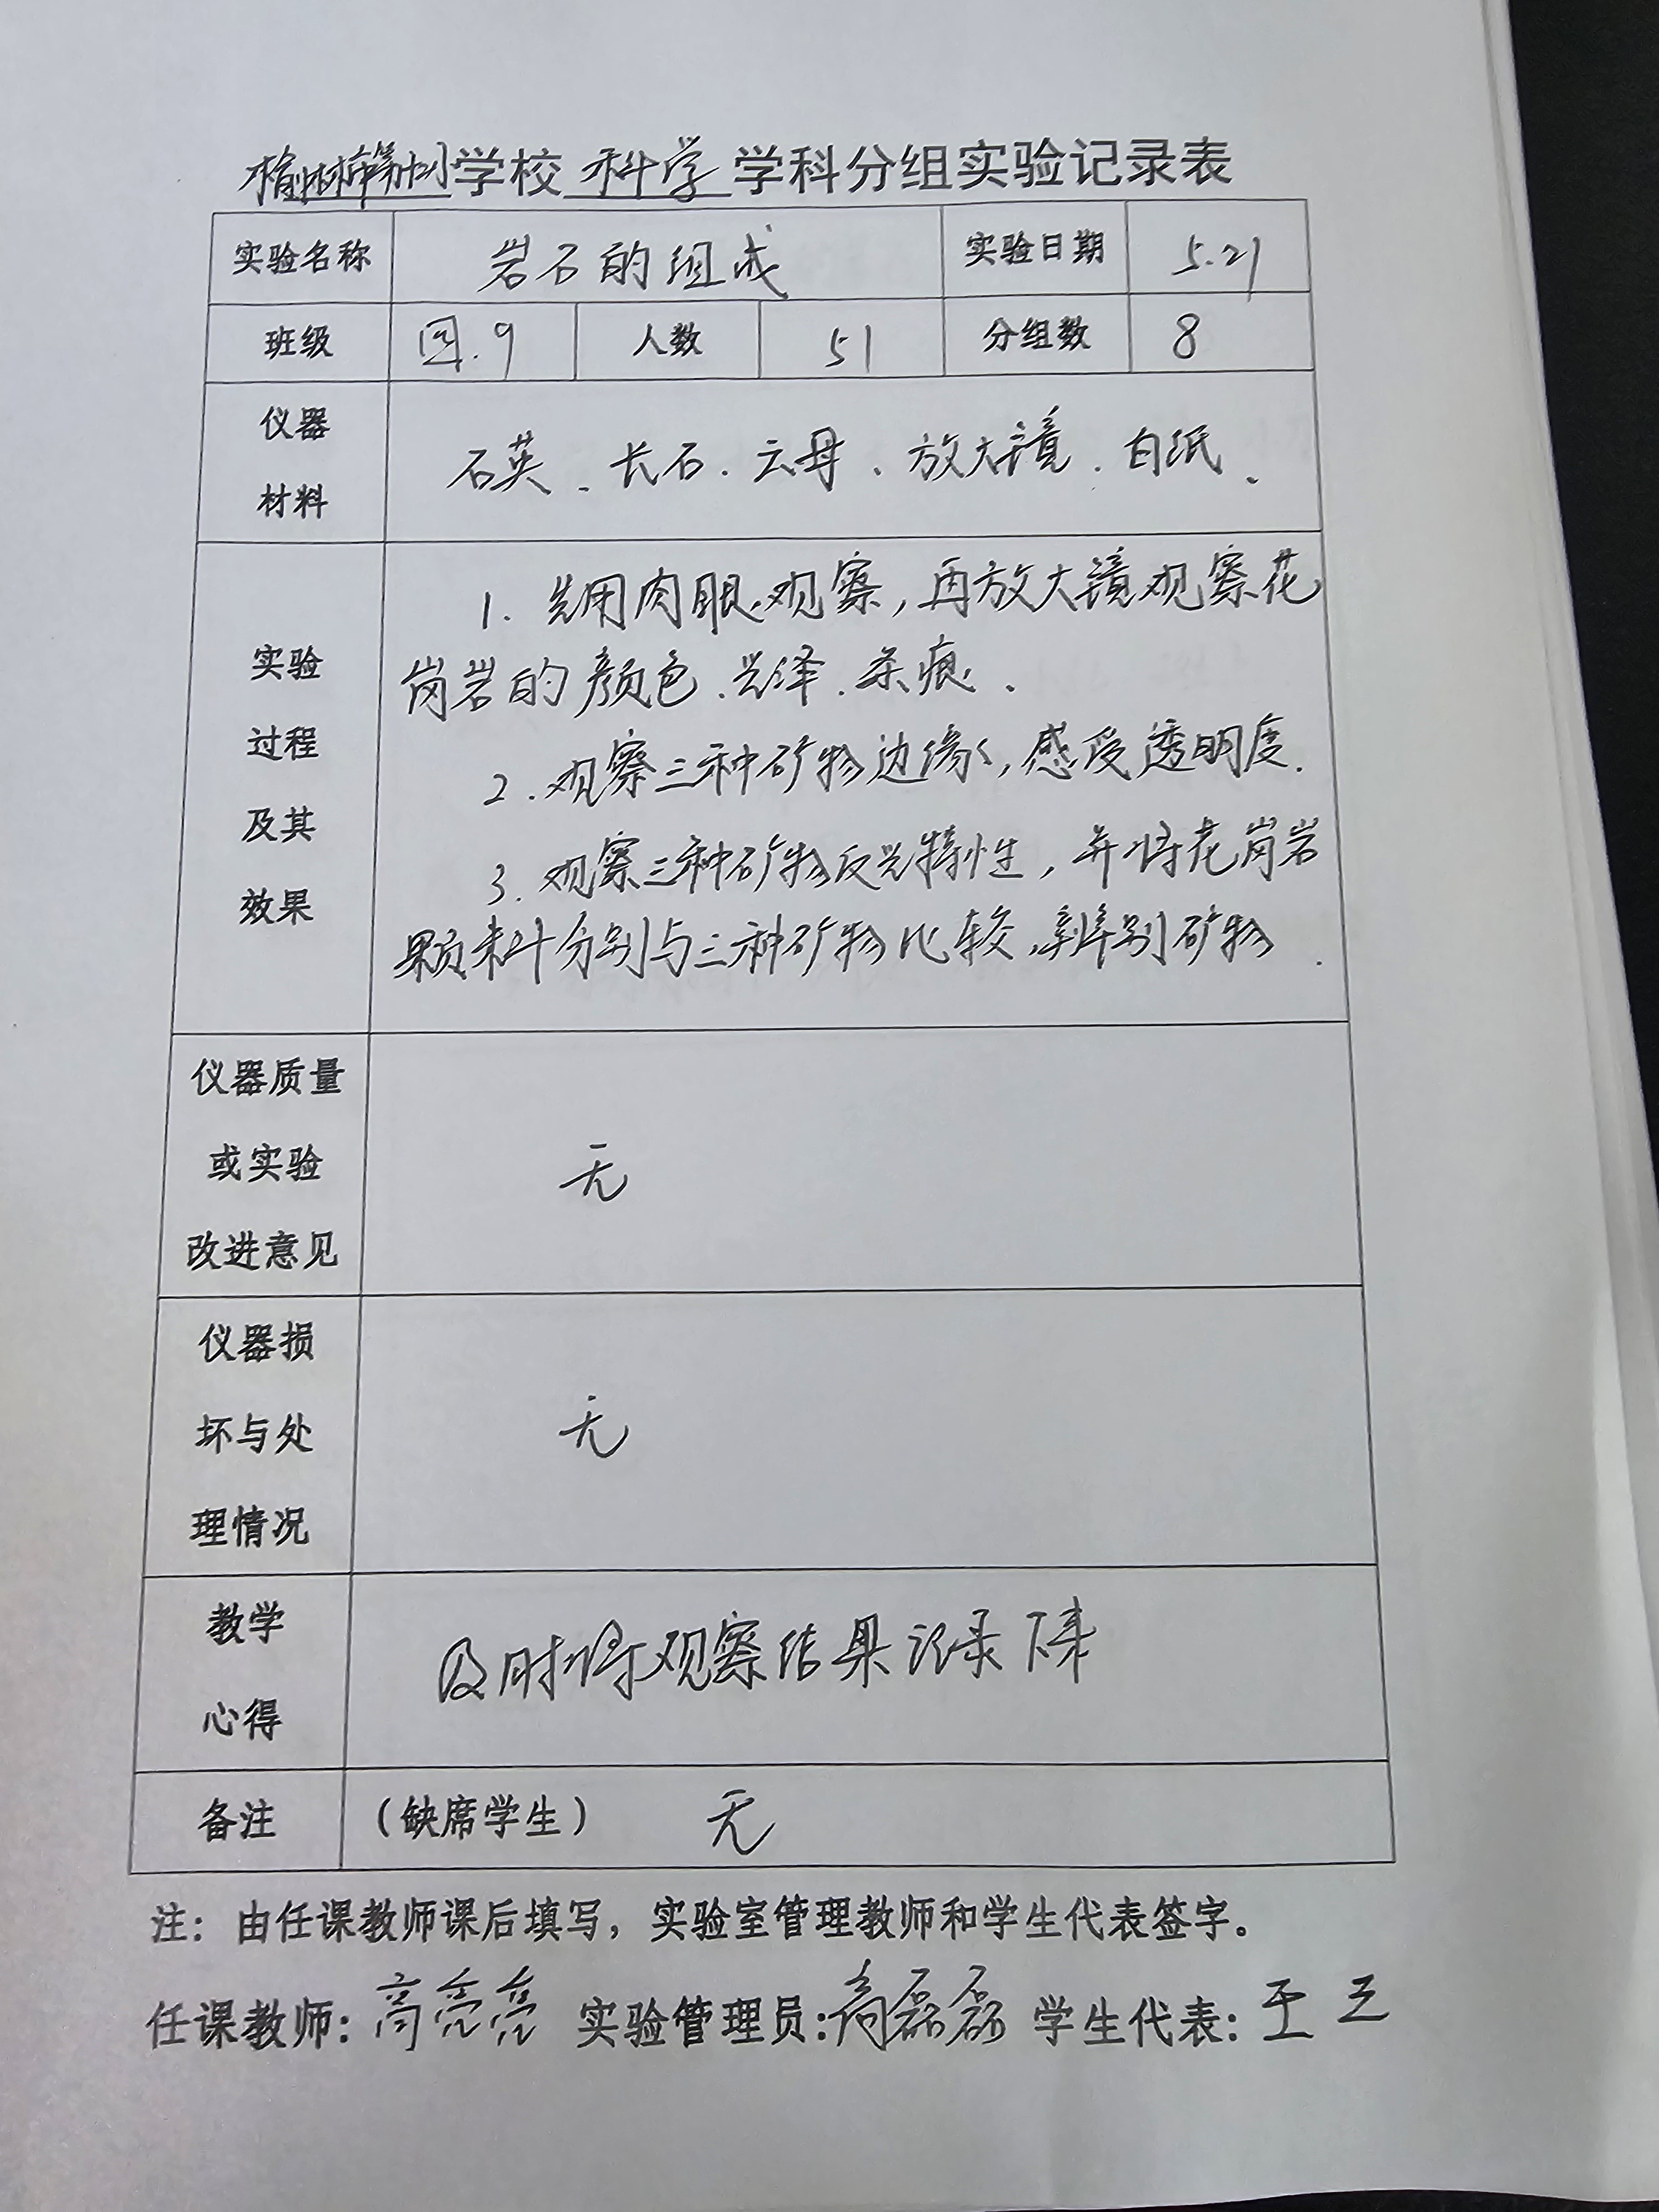 榆林市第十二小学校 科学 学科分组实验记录表
实验名称 岩石的组成 实验日期 5.21
班级 四.9 人数 51 分组数 8
仪器
材料
石英、长石、云母、放大镜、白纸、
实验
过程
及其
效果
1. 先用肉眼观察,再放大镜观察花
岗岩的颜色、光泽、条痕、
2.观察三种矿物边缘,感受透明度.
3.观察三种矿物反光特性,并将花岗岩
颗料分别与三种矿物比较,辨别矿物.
仪器质量
或实验
改进意见
无
仪器损
坏与处
理情况
无
教学
心得
及时将观察结果记录下来
备注 (缺席学生) 无
注:由任课教师课后填写,实验室管理教师和学生代表签字。
任课教师:高亮亮 实验管理员:高磊磊 学生代表:王